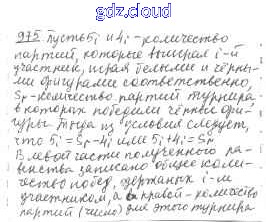 gdz.cloud
975 Пусть Бᵢ и Чᵢ - количество
партий, которые выиграл i-й
участник, играя белыми и чёрны-
ми фигурами соответственно,
Sр - количество партий турнира
в которых победили чёрные фи-
гуры. Тогда из условия следует,
что Бᵢ = Sр - Чᵢ или Бᵢ + Чᵢ = Sр
В левой части полученного ра-
венства записано общее коли-
чество побед, одержаных i-м
участником, а в правой - количество
партий (число) для этого турнира